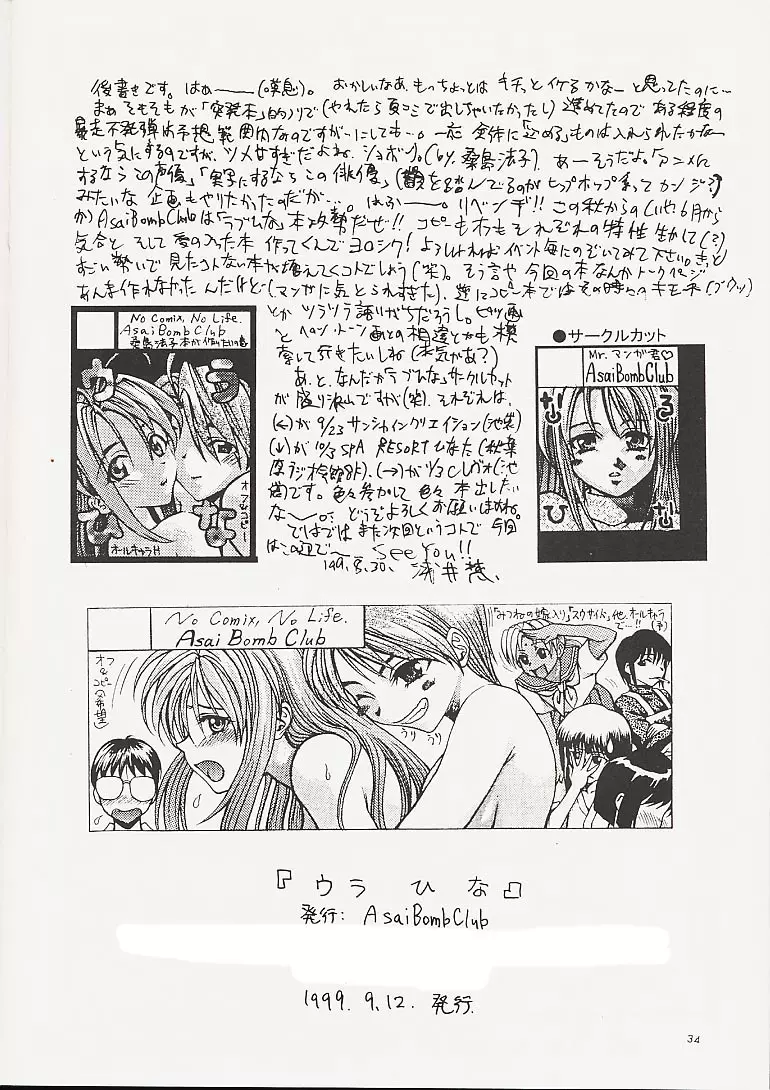 後書きです。はぁ――(嘆息)。 おかしいなあ、もっちょっとは キチっとイケるかなーと思ってたのに…
まぁ そもそもが「突発本」的ノリで(やれたら夏コミで出しちゃいたかたし) 進めてたので ある程度の
暴走不発弾は予想範囲内なのですが…にしても…。一応 全体に「込める」ものは入れられたかなー
という気にするのですが、ツメ甘すぎだよね、ショボン。(by.桑島法子)。 あーそうだよ。「アニメに
するなら この声優」「実写にするなら この俳優」( を踏んでるのが ヒップホップ系って カンジ?)
みたいな 企画もやりたかったのだが…。はふぅー。リベンヂ!! この秋からの(いや6月から
か) AsaiBombClubは「ラブひな」本攻勢だぜ!! コピーもオフも それぞれの特性 生かして(?)
気合と そして 愛の入った本 作ってくんで ヨロシク! よろしければ イベント毎にのぞいてみて下さい。きっと
すごい勢いで 見たコトない本が 増えてくコトでしょう(笑)。 そう言や 今回の本なんか トークページ
あんま作れなかた んだけど…(マンガに気とられすぎた)、逆にコピー本では その時々のキモチ
とか ツラツラ語りがちだろうし。
と ペン・トーン画との相違とかも模
索して行きたいしね(本気かあ?)
あ、と、なんだか「ラブひな」サークルカット
が盛り沢山ですが(笑)、それぞれは、
(←)が 9/23 サンシャインクリエイション(池袋)
(↓)が 10/3 SPA RESORT ひなた(秋葉
原ラジオ会館8F)、(→)が (池
袋)です。色々参加して 色々 本出したい
な〜っ。どうぞよろしくお願いしますね。
ではでは また次回というコトで 今回
はこの辺で〜 See You!!
'99. 8. 30. 浅井
No Comix, No Life.
AsaiBombClub
桑島法子本が作りたい
ら
ぶ
ひ
な
オフ&コピー
オールキャラH
●サークルカット
Mr. マンガ君♡
AsaiBombClub
ら
ぶ
ひ
な
No Comix, No Life.
Asai Bomb Club
オフ&コピー(希望)
「みつねの嫁入り」「スウサイド」他、オールキャラで…!!(予)
うり うり
『ウラ ひな』
発行: AsaiBombClub
1999. 9. 12. 発行.
34